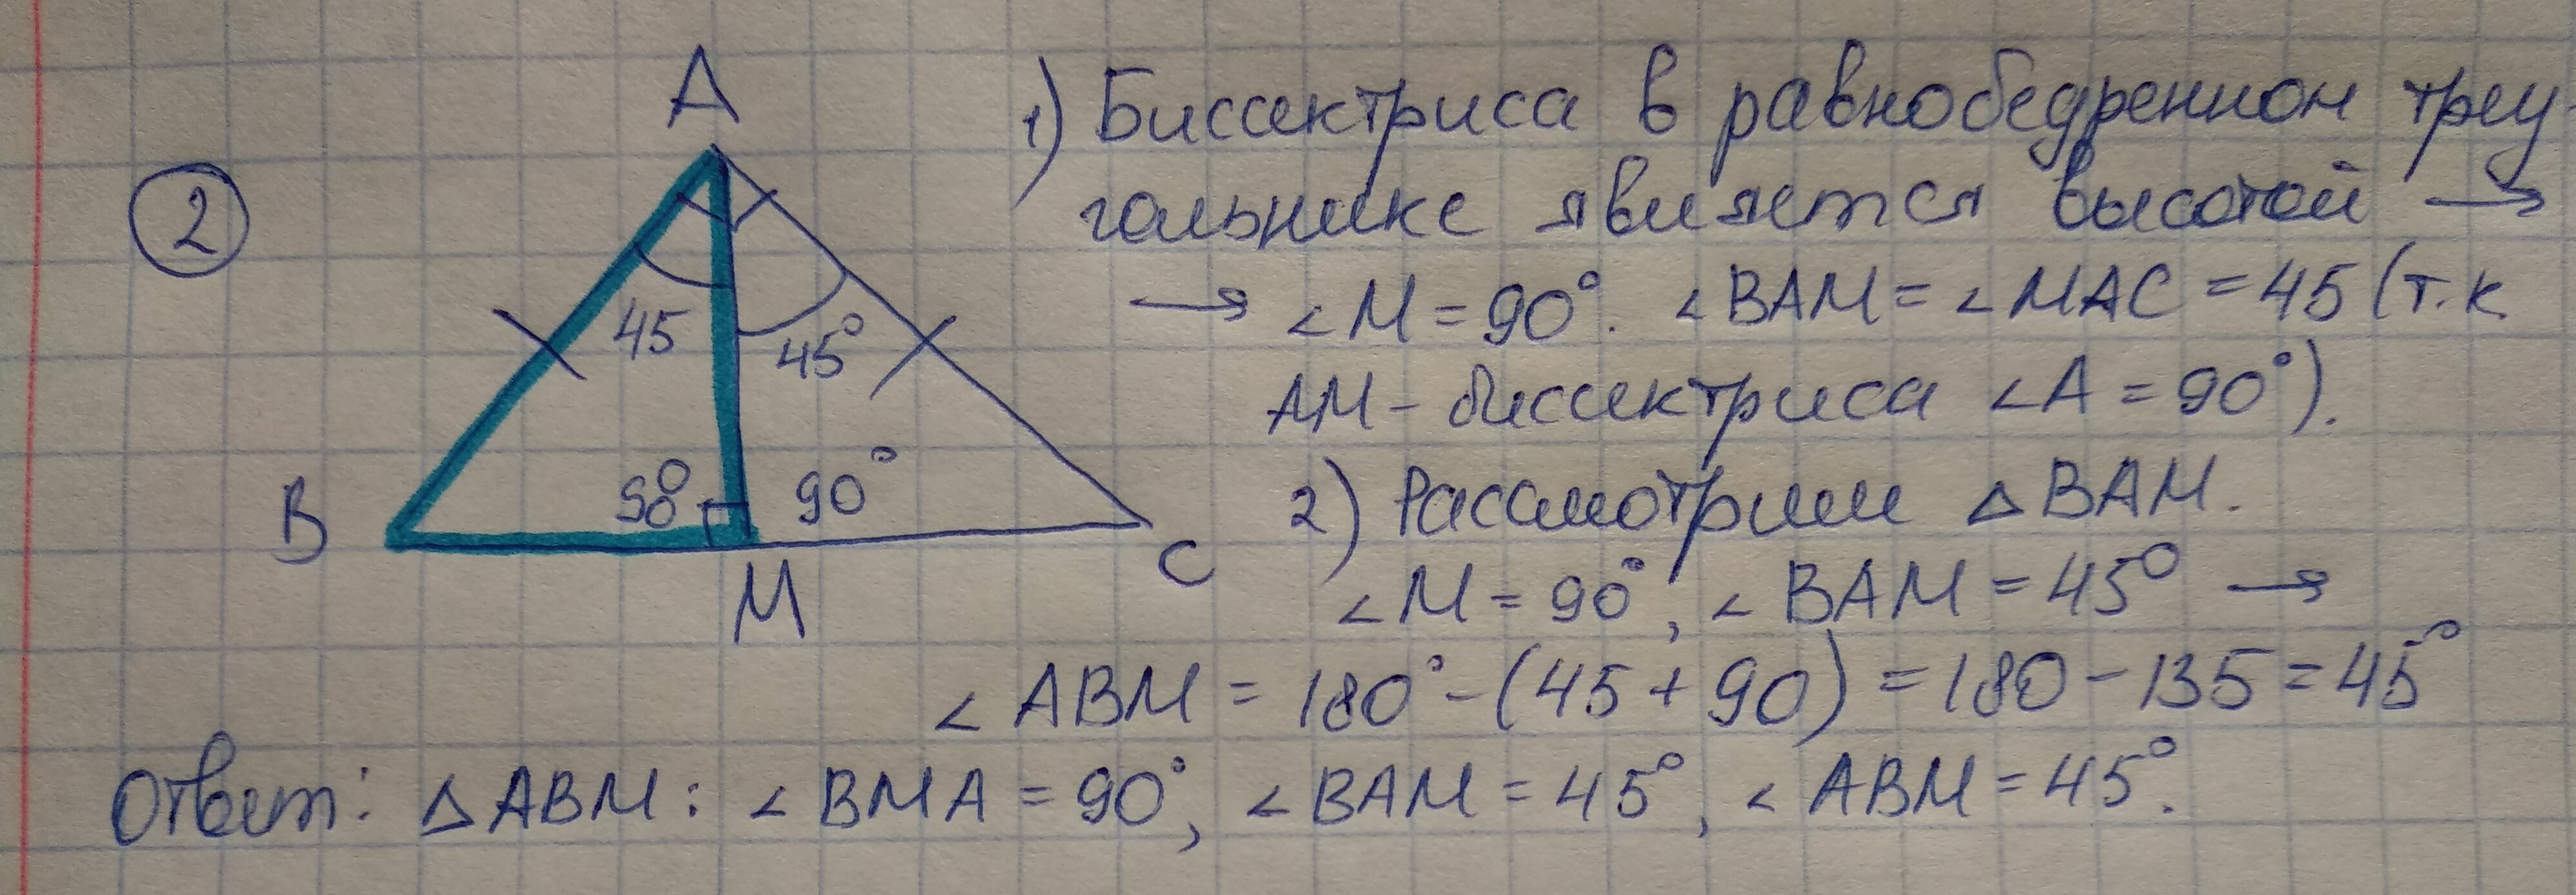 2
A
B
M
C
45
45°
90°
90°
1) Биссектриса в равнобедренном треу
гольнике является высотой →
→ ∠M = 90°. ∠BAM = ∠MAC = 45 (т.к
AM - биссектриса ∠A = 90°).
2) Рассмотрим △BAM.
∠M = 90°, ∠BAM = 45° →
∠ABM = 180° - (45 + 90) = 180 - 135 = 45°
Ответ: △ABM: ∠BMA = 90°, ∠BAM = 45°, ∠ABM = 45°.